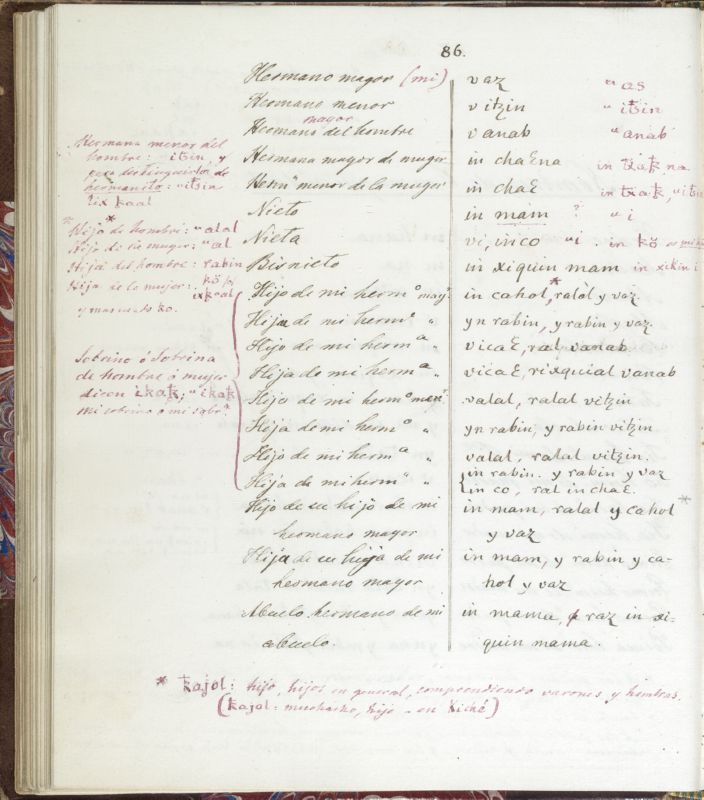 86.
Hermano mayor (mi) vaz " as
Hermano menor vitzin " itsin
mayor
Hermana del hombre vanab " anab
Hermana mayor de muger in chaɛna in txak na
Herm menor de la muger in chaɛ in txak,
Nieto in mam ? " i
Nieta vi, in co " i . in kö
Bisnieto in xiquin mam in xikin i
Hijo de mi herm.º may.r in cahol, ralal y vaz
Hija de mi herm.º " yn rabin, y rabin y vaz.
Hijo de mi herm.a " vicaɛ, ral vanab
Hija de mi herm.a " vicaɛ, rixquial vanab
Hijo de mi herm.º men.r valal, ralal vitzin
Hija de mi herm.º " yn rabin, y rabin vitzin
Hijo de mi herm.a " valal, ralal vitzin.
Hija de mi herm.a " in rabin. y rabin y vaz
in co, ral in chaɛ.
Hijo de su hijo de mi in mam, ralal y cahol
hermano mayor y vaz
Hija de su hija de mi in mam, y rabin y ca-
hermano mayor hol y vaz
Abuelo hermano de mi in mama, raz in xi-
abuelo. quin mama.
Hermana menor del
hombre: itsin, y
para distinguirla de
hermanito: " itsin
rix kaal
* Hijo de hombre: " alal
Hijo de la muger: " al
Hija del hombre: rabin
Hija de la mujer: kö
ixkal
y
Sobrino ó Sobrina
de hombre ó mujer
dicen ikak; " ikak
mi sobrino ó mi sobr.a
* kajol: hijo, hijos en general, comprendiendo varones y hembras.
(kajol: muchacho, hijo - en Kiché)